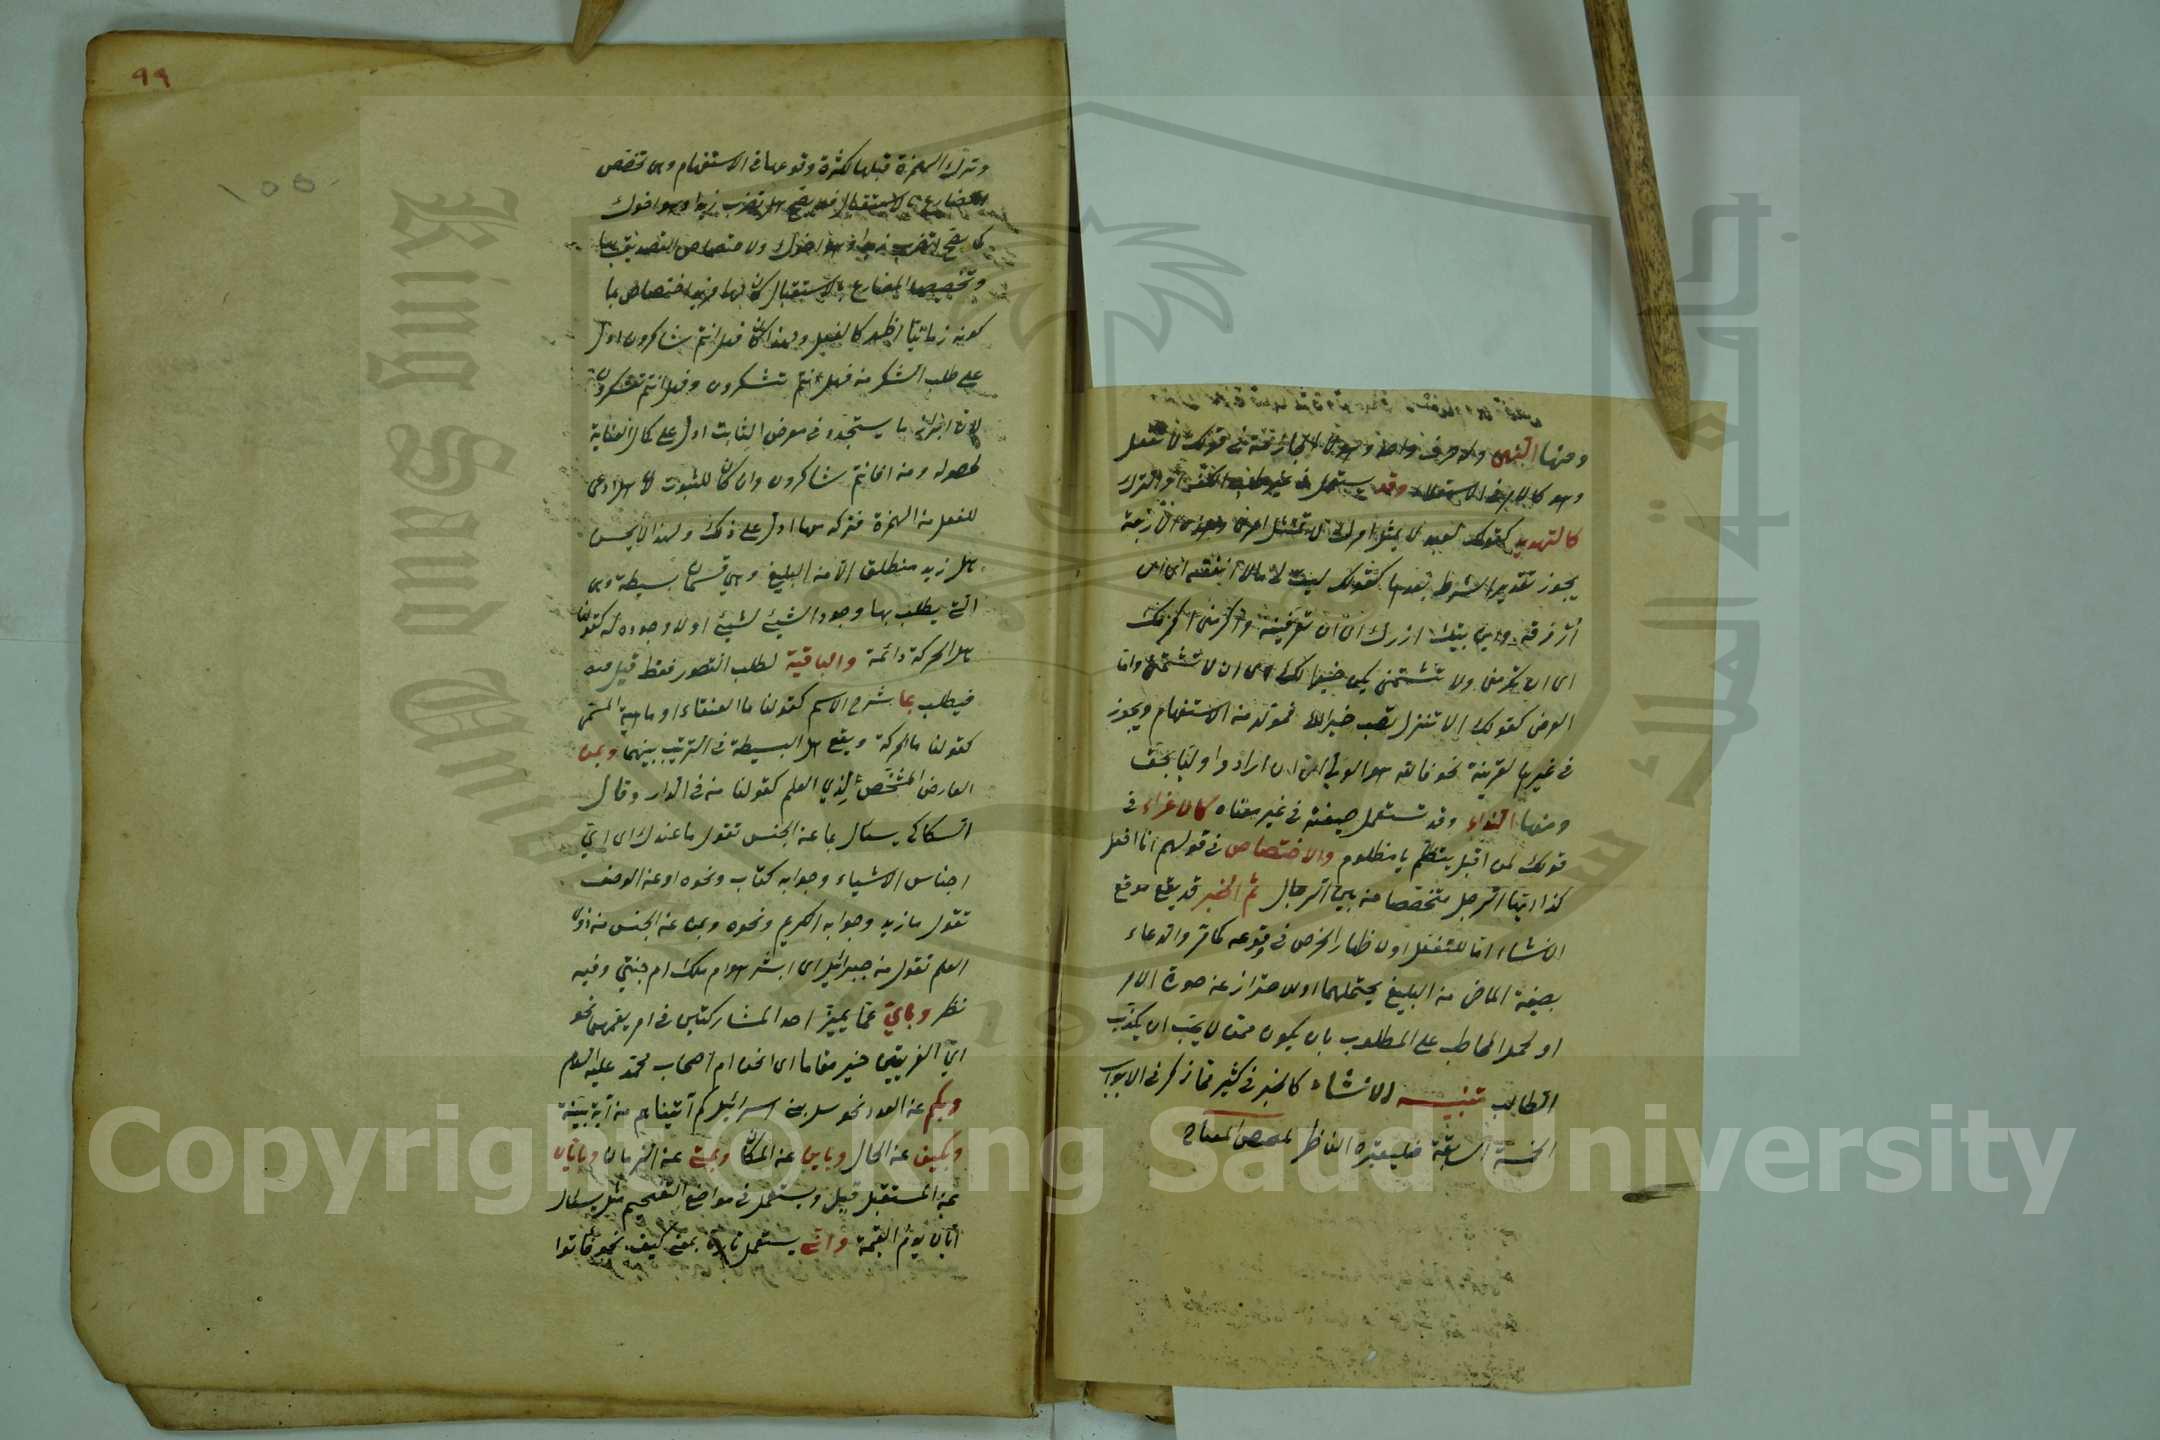 ومنها النهى وله حرف واحد وهو لا الجازمة فى قولك لا تفعل
وهو كالامر فى الاستعلاء وقد يستعمل فى غير طلب الكف او الترك
كالتهديد كقولك لعبد لا يمتثل امرك لا تمتثل امرى وهذه الاربعة
يجوز تقدير الشرط بعدها كقولك ليت لى مالا انفقه اى ان
ارزقه واين بيتك ازرك اى ان تعرفنيه واكرمنى اكرمك
اى ان تكرمنى ولا تشتمنى يكن خيرا لك اى ان لا تشتمنى واما
العرض كقولك الا تنزل تصب خيرا فمولد من الاستفهام ويجوز
فى غيرها لقرينة نحو فالله هو الولى اى ان ارادوا وليا بحق
ومنها النداء وقد تستعمل صيغته فى غير معناه كالاغراء فى
قولك لمن اقبل يتظلم يا مظلوم والاختصاص فى قولهم انا افعل
كذا ايها الرجل متخصصا من بين الرجال ثم الخبر قد يقع موقع
الانشاء اما للتفؤل او لاظهار الحرص فى وقوعه كما مر والدعاء
بصيغة الماضى من البليغ يحتملهما او للاحتراز عن صورة الامر
او لحمل المخاطب على المطلوب بان يكون ممن لا يحب ان يكذب
الطالب تنبيه الانشاء كالخبر فى كثير مما ذكر فى الابواب
الخمسة السابقة فليعتبره الناظر
٩٩
وترك الهمزة قبلها لكثرة وقوعها فى الاستفهام وهى تخصص
المضارع بالاستقبال فلا يصح هل تضرب زيدا وهو اخوك
كما يصح اتضرب زيدا وهو اخوك ولاختصاص التصديق بها
وتخصيصها المضارع بالاستقبال كان لها مزيد اختصاص بما
كونه زمانيا اظهر كالفعل ولهذا كان فهل انتم شاكرون ادل
على طلب الشكر من فهل تشكرون وفهل انتم تشكرون
لان ابراز ما سيتجدد فى معرض الثابت ادل على كمال العناية
لحصوله ومن افانتم شاكرون وان كان للثبوت لان هل ادعى
للفعل من الهمزة فتركه معها ادل على ذلك ولهذا لا يحسن
هل زيد منطلق الا من البليغ وهى قسمان بسيطة وهى
التى يطلب بها وجود الشيئ لشيئ او لا وجوده له كقولنا
هل الحركة دائمة والباقية لطلب التصور فقط قيل
فيطلب بما شرح الاسم كقولنا ما العنقاء او ماهية المسمى
كقولنا ما الحركة ويقع هل البسيطة فى الترتيب بينهما وبمن
العارض المشخص لذى العلم كقولنا من فى الدار وقال
السكاكى يسئل بما عن الجنس تقول ما عندك اى اى
اجناس الاشياء وجوابه كتاب ونحوه او عن الوصف
تقول ما زيد وجوابه الكريم ونحوه وبمن عن الجنس من ذوى
العلم تقول من جبرائيل اى ابشر هو ام ملك ام جنى وفيه
نظر وباى عما يميز احد المتشاركين فى امر يعمهما نحو
اى الفريقين خير مقاما اى انحن ام اصحاب محمد عليه السلام
وبكم عن العدد نحو سل بنى اسرائيل كم آتيناهم من آية بينة
وبكيف عن الحال وباين عن المكان وبمتى عن الزمان وبايان
عن المستقبل قيل ويستعمل فى مواضع التفخيم مثل يسئل
ايان يوم القيمة وانى يستعمل تارة بمعنى كيف نحو فأتوا
Copyright © King Saud University